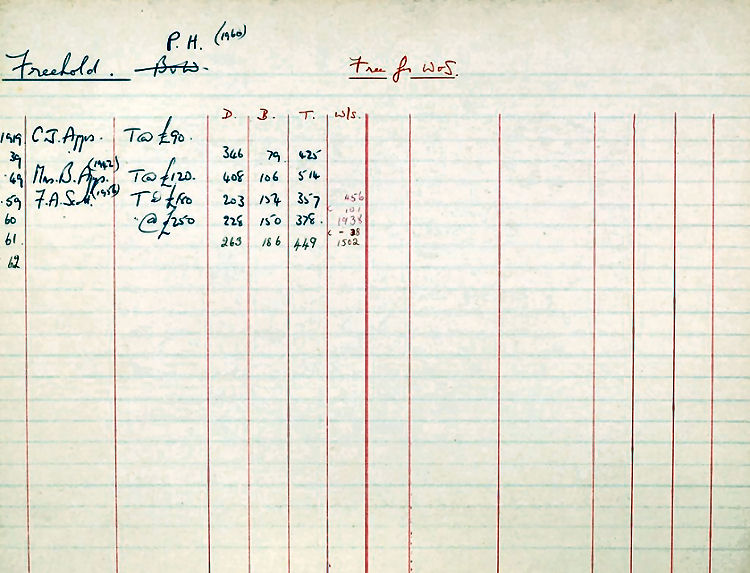 P. H. (1960)
Freehold. B&W. Free for WoS.
D. B. T. W/S.
1919 C J. Apps. T@ £90.
39 346 79. 425
49 Mrs. B. Apps. (1942) T@ £120. 408 106 514
59 F. A. (1956) T@ 203 154 357 456
60 @ £250 228 150 378. 1938
61 263 186 449 1502
62